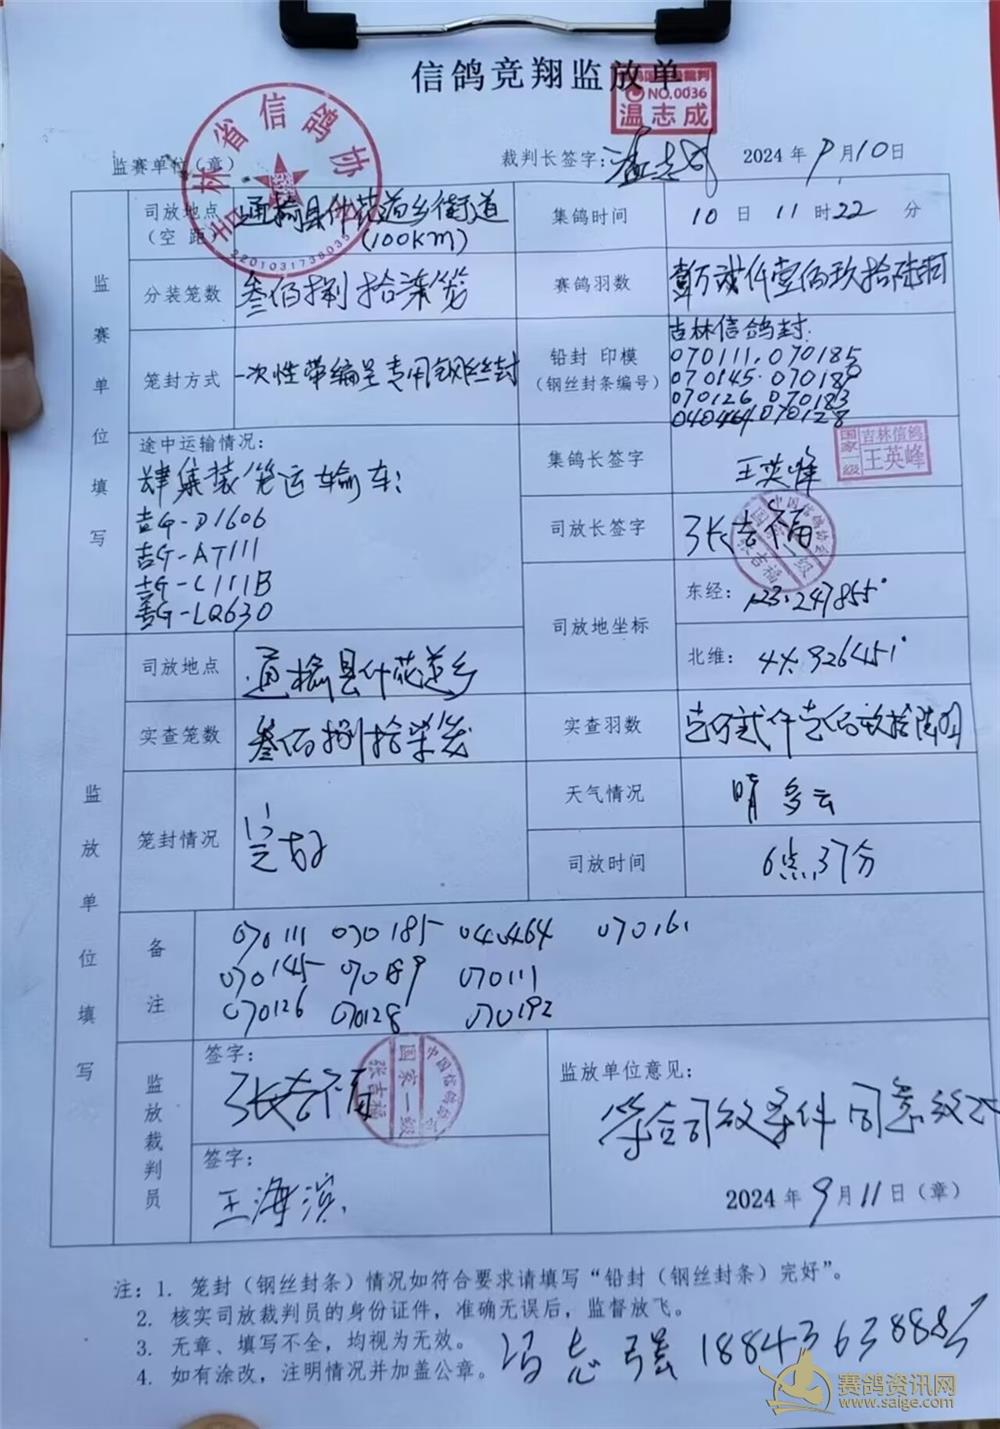 信鸽竞翔监放单
NO.0036
温志成
监赛单位(章)
裁判长签字:温志成 2024年9月10日
吉林省信鸽协
2201031738035
监赛单位填写
司放地点(空距) 通榆县什花道乡街道
(100KM)
集鸽时间 10日11时22分
分装笼数 叁佰捌拾柒笼
赛鸽羽数 壹万贰仟壹佰玖拾陆羽
笼封方式 一次性带编号专用钢丝封
铅封 印模
(钢丝封条编号)
吉林信鸽封:
070111. 070185
070145. 070189
070126. 070183
040464 070128
途中运输情况:
肆集装笼运输车:
吉G-D1606
吉G-AT111
吉G-C111B
吉G-LQ630
集鸽长签字 王英峰
国家一级
吉林信鸽
王英峰
司放长签字 张吉福
中国信鸽协会
国家一级
张吉福
司放地坐标
东经: 123.247855°
北维: 44.926451°
监放单位填写
司放地点 通榆县什花道乡
实查笼数 叁佰捌拾柒笼
实查羽数 壹万贰仟壹佰玖拾陆羽
笼封情况 完好
天气情况 晴多云
司放时间 6点37分
备注
070111 070185 040464 070161
070145 070189 070111
070126 070128 070192
监放裁判员
签字:
张吉福
中国信鸽协会
国家一级
张吉福
签字:
王海滨
监放单位意见:
符合司放条件 同意放飞
2024年9月11日(章)
注: 1. 笼封(钢丝封条)情况如符合要求请填写“铅封(钢丝封条)完好”。
2. 核实司放裁判员的身份证件,准确无误后,监督放飞。
3. 无章、填写不全,均视为无效。
4. 如有涂改,注明情况并加盖公章。
冯志强
赛鸽资讯网
www.saige.com